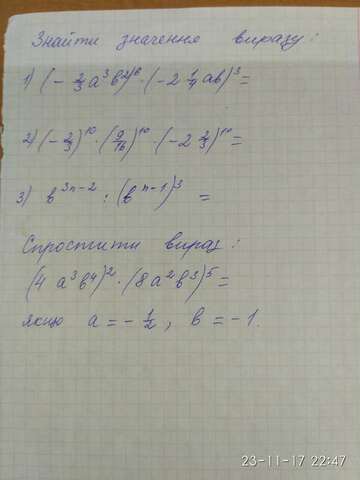 Знайти значення виразу:
1) (- 2/3 a³ b²)⁶ · (-2 1/4 ab)³ =
2) (- 2/3)¹⁰ · (9/16)¹⁰ · (-2 2/3)¹⁰ =
3) b³ⁿ⁻² : (b ⁿ⁻¹)³ =
Спростити вираз:
(4 a³ b⁴)² · (8a² b³)⁵ =
якщо a = - 1/2, b = -1.
23-11-17 22:47